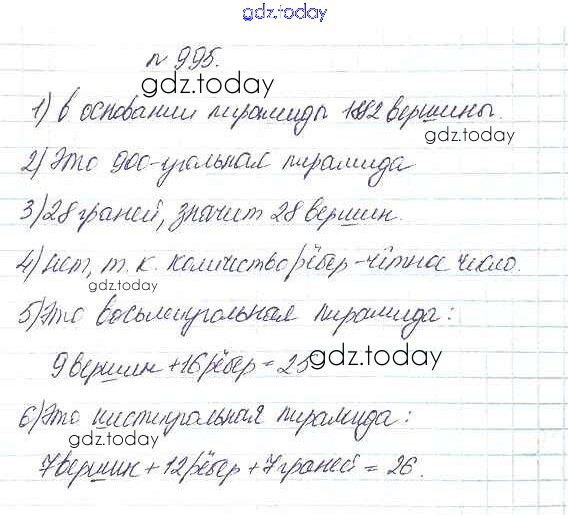 gdz.today
№ 995.
gdz.today
1) в основании пирамиды 1892 вершины.
gdz.today
2) Это 900-угольная пирамида
3) 28 граней, значит 28 вершин.
4) нет, т. к. количество рёбер - чётное число.
gdz.today
5) Это восьмиугольная пирамида:
9 вершин + 16 рёбер = 25
gdz.today
6) Это шестиугольная пирамида:
gdz.today
7 вершин + 12 рёбер + 7 граней = 26.